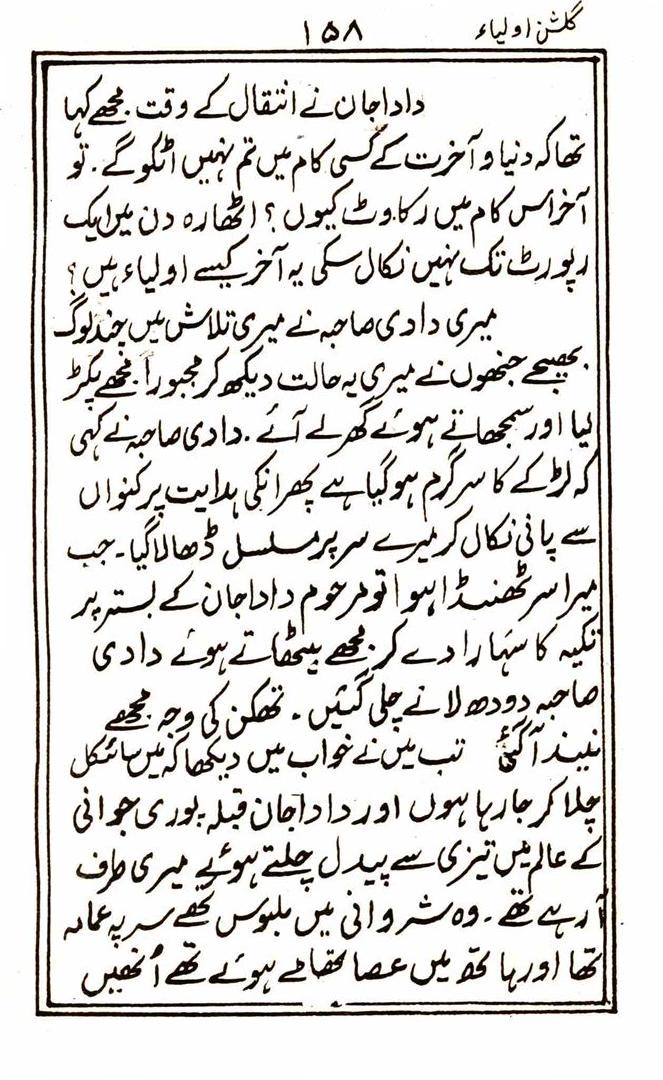 گلشن اولیاء
۱۵۸
دادا جان نے انتقال کے وقت مجھے کہا
تھا کہ دنیا و آخرت کے کسی کام میں تم نہیں اٹکو گے . تو
آخر اس کام میں رکاوٹ کیوں ؟ اٹھارہ دن میں ایک
رپورٹ تک نہیں نکال سکی یہ آخر کیسے اولیاء ہیں ؟
میری دادی صاحبہ نے میری تلاش میں چند لوگ
بھیجے جنھوں نے میری یہ حالت دیکھ کر مجبوراً مجھے پکڑ
لیا اور سمجھاتے ہوئے گھر لے آئے . دادی صاحبہ نے کہی
کہ لڑکے کا سر گرم ہو گیا ہے پھر انکی ہدایت پر کنواں
سے پانی نکال کر میرے سر پر مسلسل ڈھالا گیا ۔ جب
میرا سر ٹھنڈا ہوا تو مرحوم دادا جان کے بستر پر
تکیہ کا سہارا دے کر مجھے بیٹھاتے ہوئے دادی
صاحبہ دودھ لانے چلی گئیں ۔ تھکن کی وجہ مجھے
نیند آگئی تب میں نے خواب میں دیکھا کہ میں سائکل
چلا کر جا رہا ہوں اور دادا جان قبلہ پوری جوانی
کے عالم میں تیزی سے پیدل چلتے ہوئے میری طرف
آ رہے تھے ۔ وہ شروانی میں ملبوس تھے سر پہ عمامہ
تھا اور ہاتھ میں عصا تھامے ہوئے تھے اُنھیں